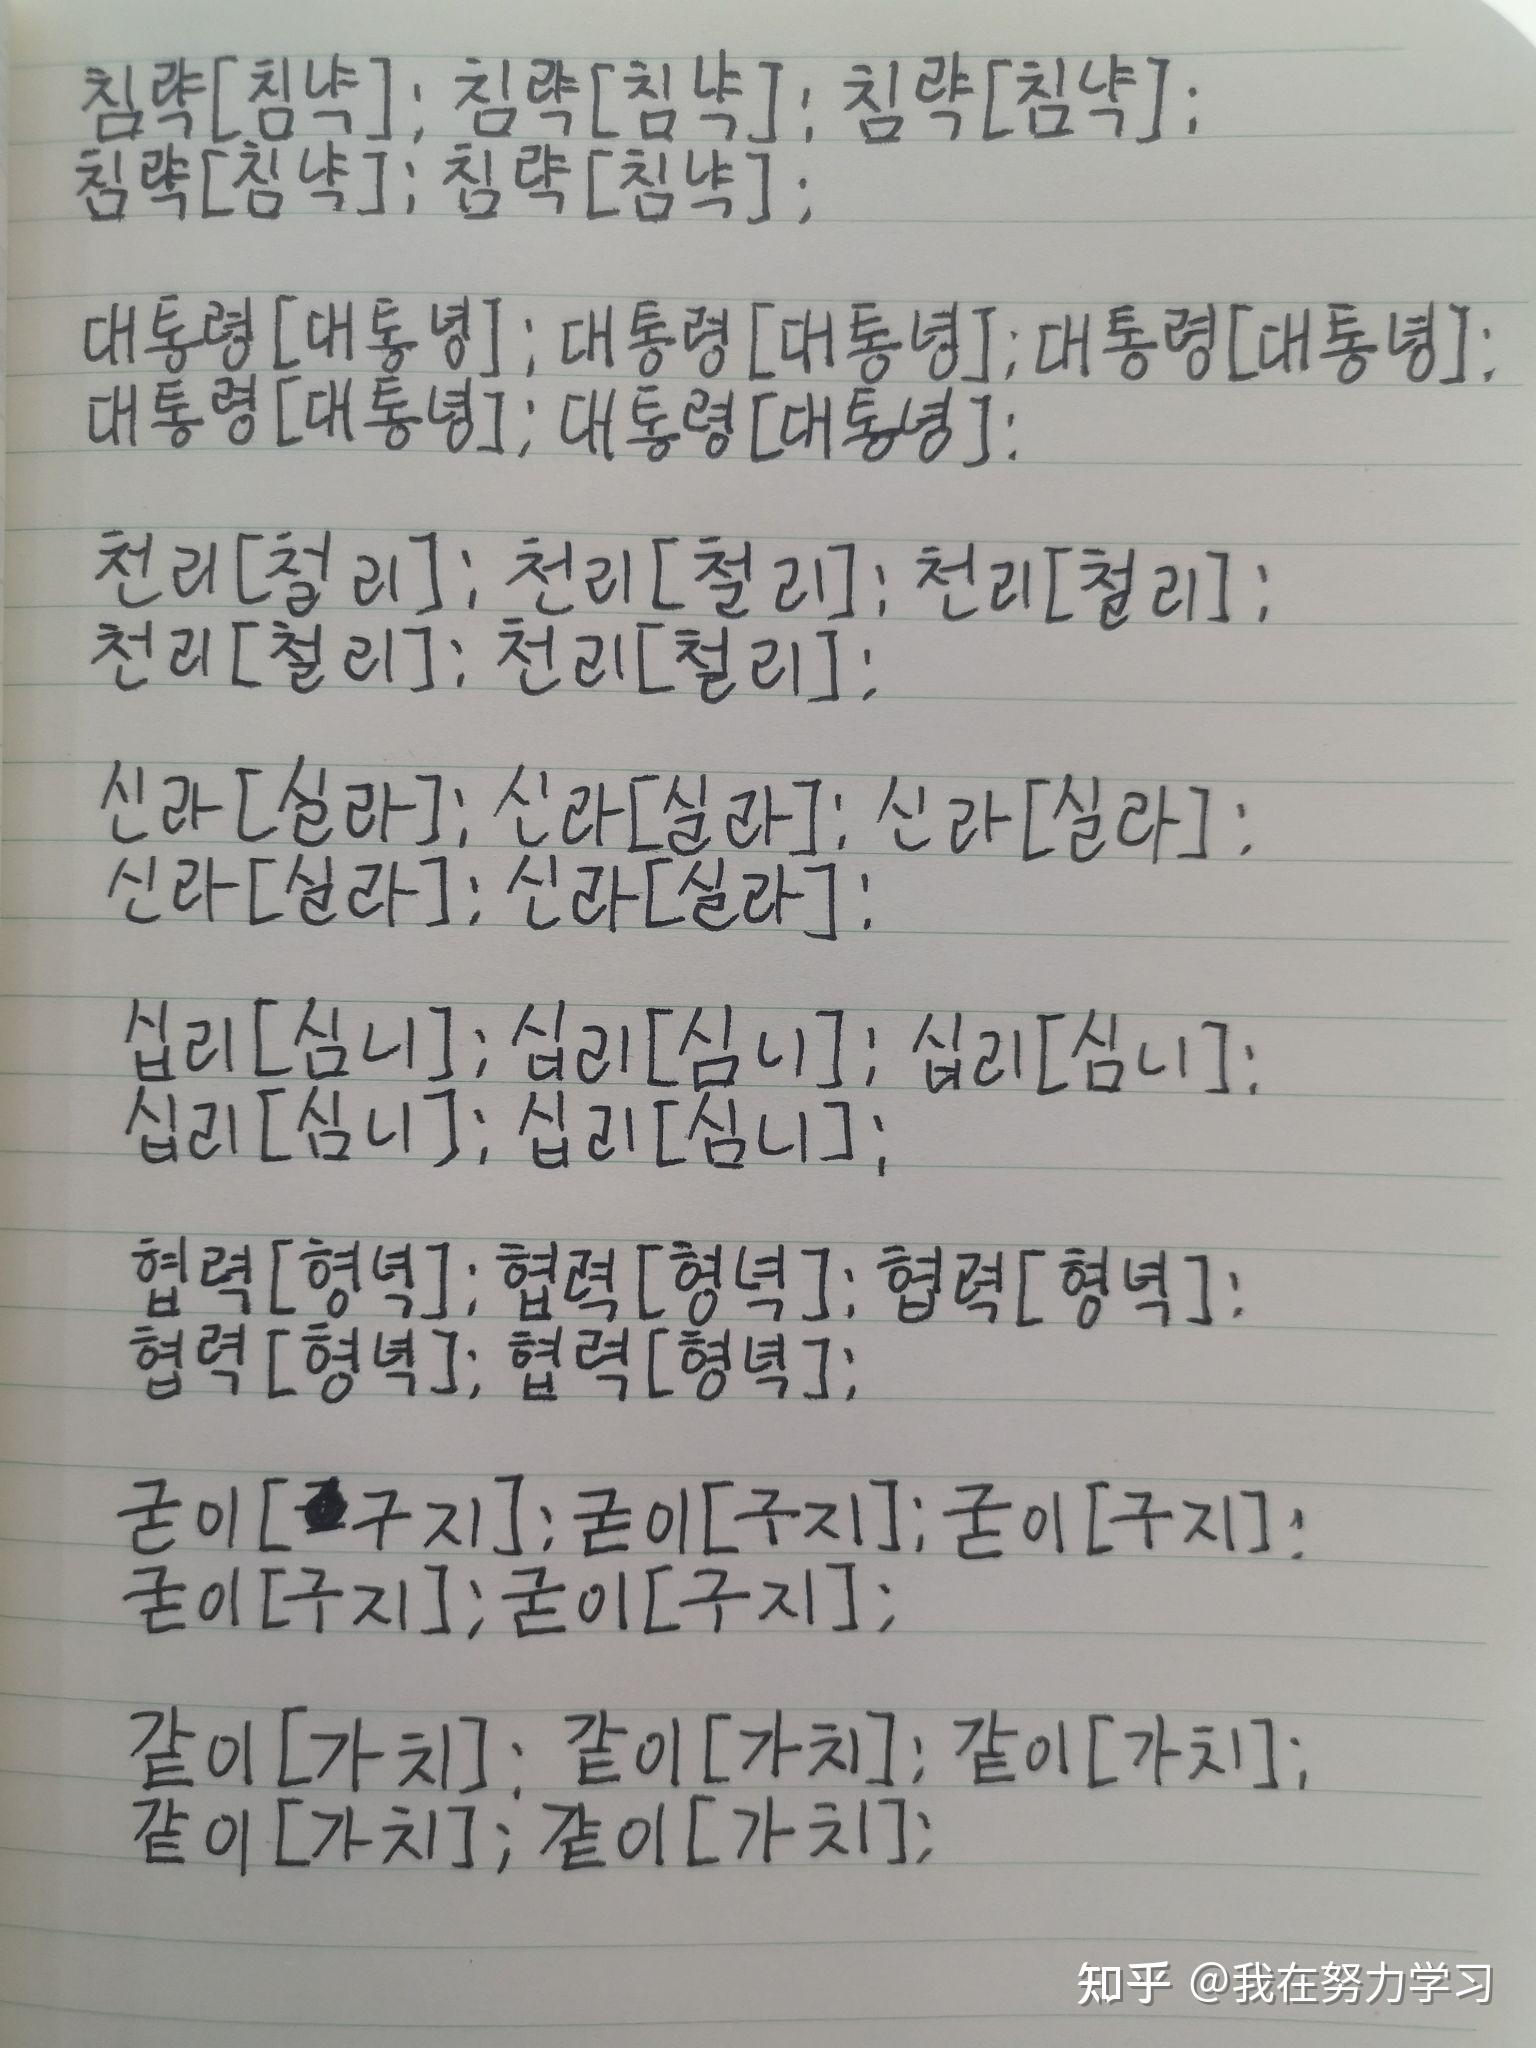 침략[침냑]; 침략[침냑]; 침략[침냑];
침략[침냑]; 침략[침냑];
대통령[대통녕]; 대통령[대통녕]; 대통령[대통녕];
대통령[대통녕]; 대통령[대통녕];
천리[철리]; 천리[철리]; 천리[철리];
천리[철리]; 천리[철리];
신라[실라]; 신라[실라]; 신라[실라];
신라[실라]; 신라[실라];
십리[심니]; 십리[심니]; 십리[심니];
십리[심니]; 십리[심니];
협력[형녁]; 협력[형녁]; 협력[형녁];
협력[형녁]; 협력[형녁];
굳이[구지]; 굳이[구지]; 굳이[구지];
굳이[구지]; 굳이[구지];
같이[가치]; 같이[가치]; 같이[가치];
같이[가치]; 같이[가치];
知乎 @我在努力学习